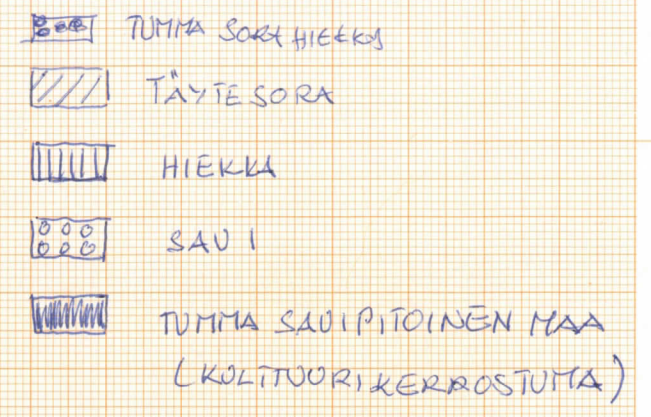 TUMMA SORA HIEKKA
TÄYTESORA
HIEKKA
SAVI
TUMMA SAVIPITOINEN MAA
(KULTTUURIKERROSTUMA)